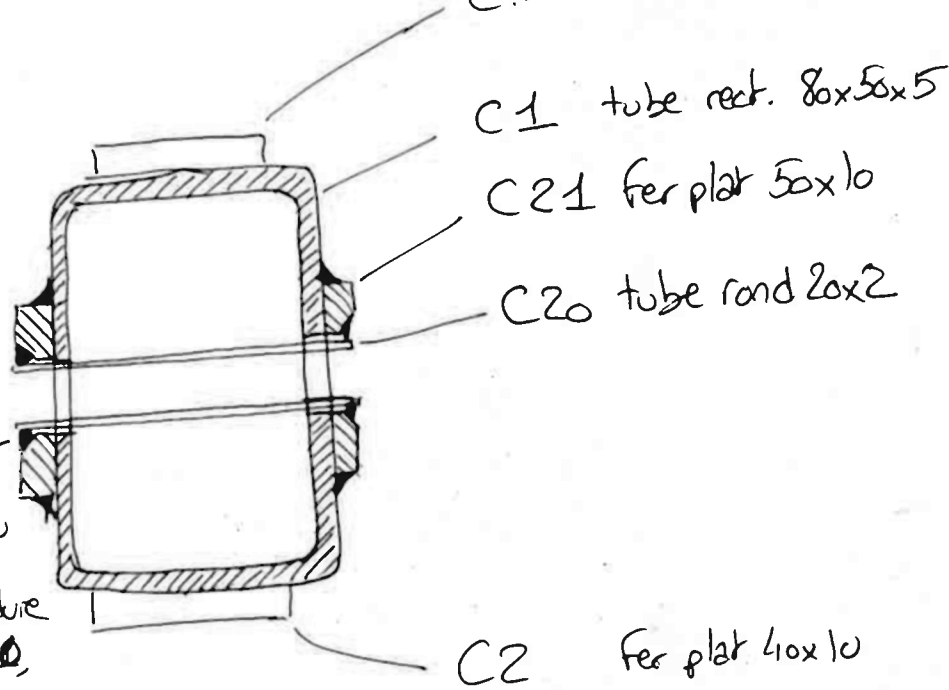 C1 tube rect. 80x50x5
C21 fer plat 50x10
C20 tube rond 20x2
C2 fer plat 40x10